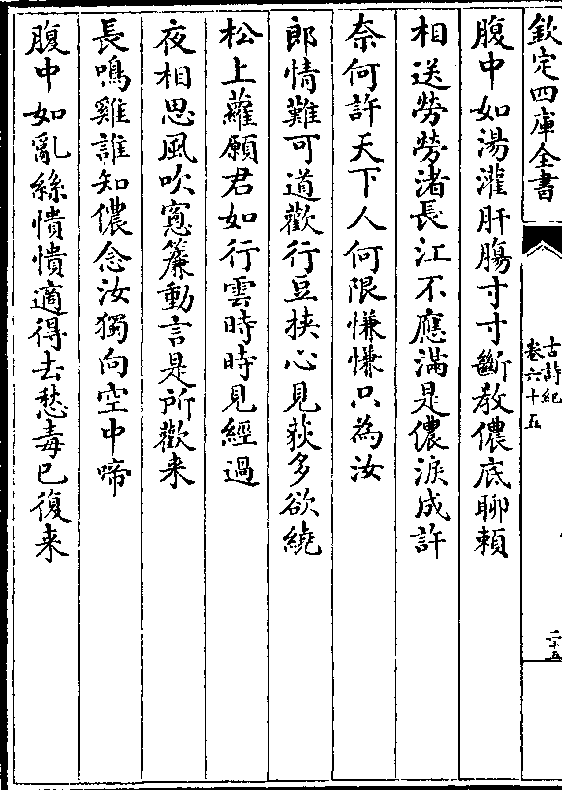 欽定四庫全書
古詩紀
卷六十五
二十五
腹中如湯灌肝腸寸寸斷教儂底聊賴
相送勞勞渚長江不應滿是儂淚成許
奈何許天下人何限慊慊只為汝
郎情難可道歡行豆挾心見荻多欲繞
松上蘿願君如行雲時時見經過
夜相思風吹窻簾動言是所歡来
長鳴雞誰知儂念汝獨向空中啼
腹中如亂絲憒憒適得去愁毒已復来